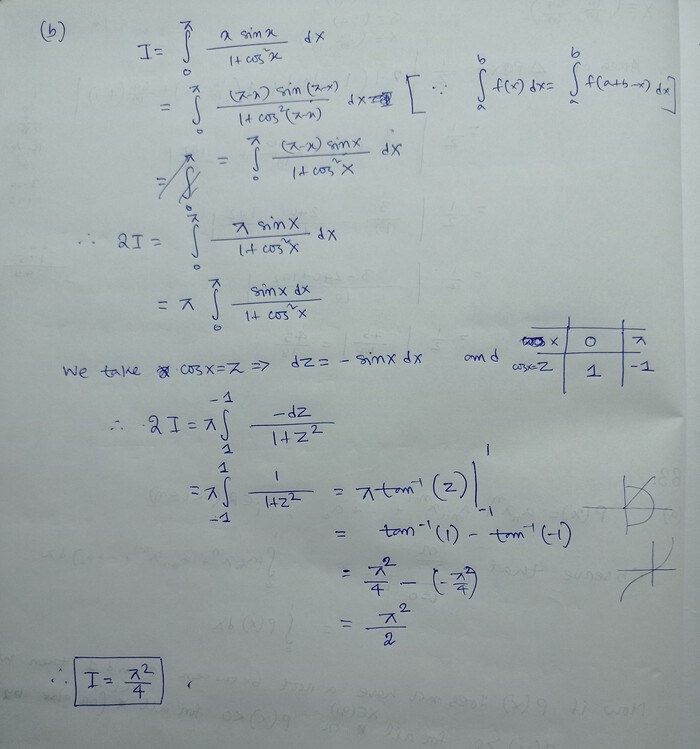 (b)
I = ∫₀^π x sin x / 1 + cos²x dx
= ∫₀^π (π-x) sin (π-x) / 1 + cos²(π-x) dx [ ∵ ∫ₐᵇ f(x) dx = ∫ₐᵇ f(a+b-x) dx ]
= ∫₀^π (π-x) sinx / 1 + cos²x dx
∴ 2I = ∫₀^π π sinx / 1 + cos²x dx
= π ∫₀^π sinx dx / 1 + cos²x
We take cosx = z ⇒ dz = - sinx dx and
x | 0 | π
cosx = z | 1 | -1
∴ 2I = π ∫₁^-1 -dz / 1+z²
= π ∫₋₁^1 1 / 1+z² = π tan⁻¹ (z) |₋₁^1
= tan⁻¹(1) - tan⁻¹(-1)
= π²/4 - (-π²/4)
= π²/2
∴ I = π²/4 .